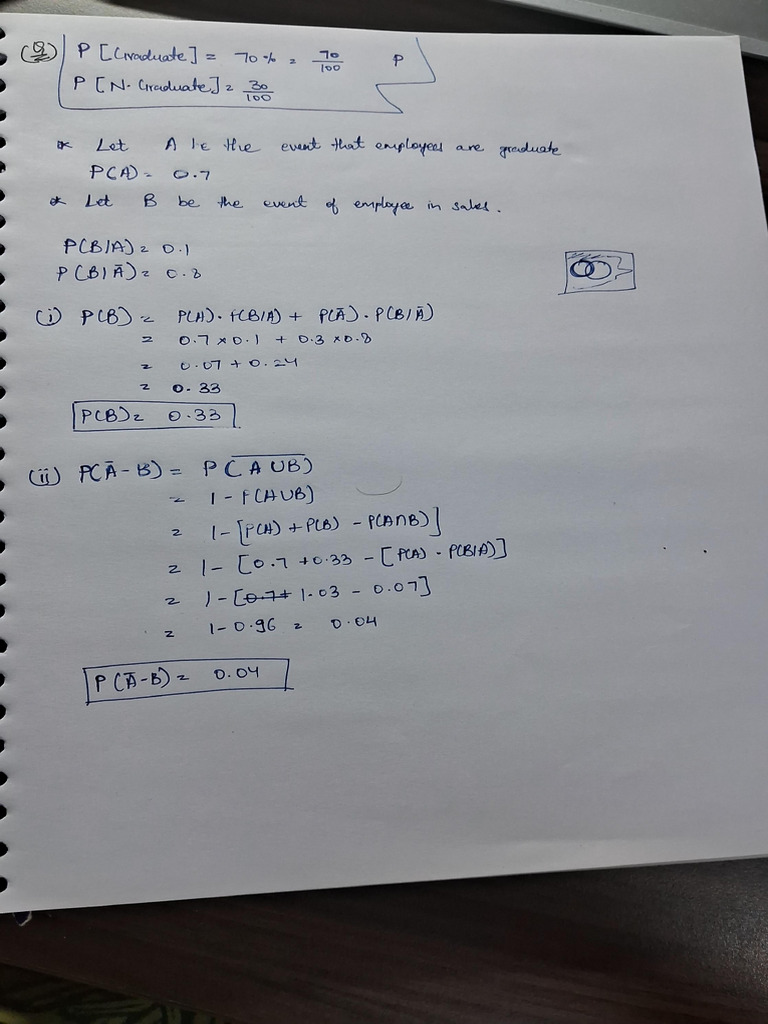 (Q) P [Graduate] = 70% = 70/100 P
P [N. Graduate] = 30/100
* Let A be the event that employees are graduate
P(A) = 0.7
* Let B be the event of employee in sales.
P(B/A) = 0.1
P(B/Ā) = 0.8
(i) P(B) = P(A). P(B/A) + P(Ā). P(B/Ā)
= 0.7 x 0.1 + 0.3 x 0.8
= 0.07 + 0.24
= 0.33
P(B) = 0.33
(ii) P(Ā - B) = P(A̅ ̅U̅ ̅B̅)
= 1 - P(AUB)
= 1 - [P(A) + P(B) - P(A∩B)]
= 1 - [0.7 + 0.33 - [P(A) · P(B/A)]
= 1 - [0.7+ 1.03 - 0.07]
= 1 - 0.96 = 0.04
P(Ā-B) = 0.04